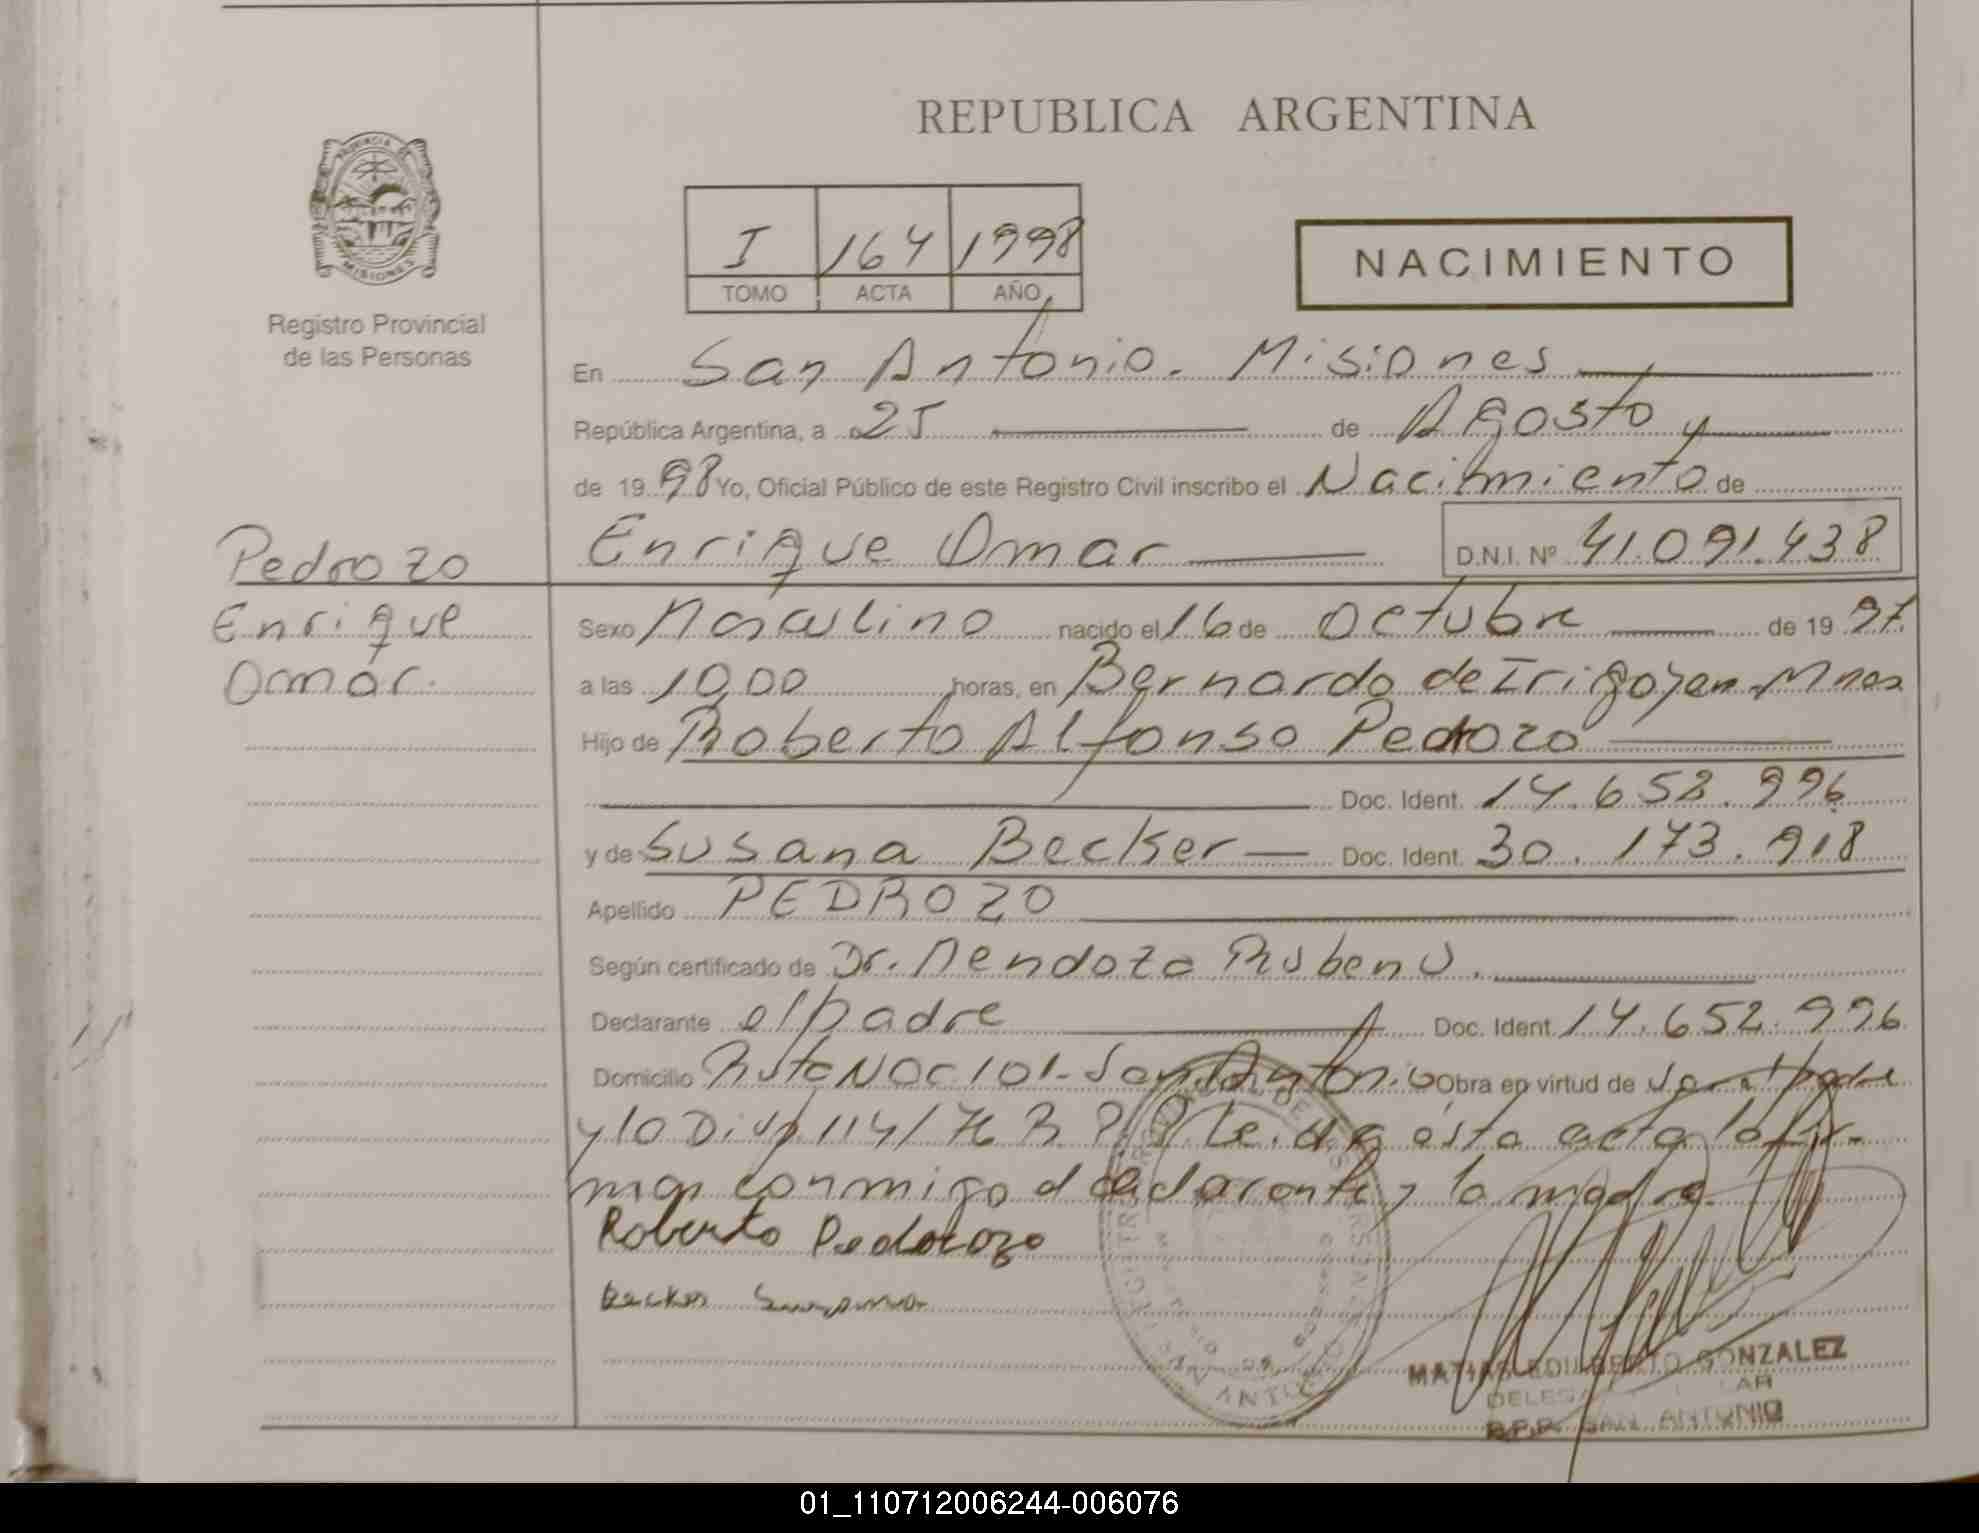 REPUBLICA ARGENTINA
PROVINCIA DE
MISIONES
Registro Provincial
de las Personas
I 164 1998
TOMO ACTA AÑO
NACIMIENTO
En San Antonio. Misiones
República Argentina, a 25 de Agosto y
de 19 98 Yo, Oficial Público de este Registro Civil inscribo el Nacimiento de
Enrique Omar D.N.I. Nº 41.091.438
Pedrozo
Enrique
Omar.
Sexo Masculino nacido el 16 de Octubre de 19 97.
a las 10,00 horas, en Bernardo de Irigoyen. Mnes
Hijo de Roberto Alfonso Pedrozo
Doc. Ident. 14.652.996
y de Susana Becker Doc. Ident. 30.173.918
Apellido PEDROZO
Según certificado de Dr. Mendoza Ruben
Declarante el padre Doc. Ident. 14.652.996
Domicilio Ruta Nac 101- San Antonio Obra en virtud de
y la Disp 114/76 R P P. Le. da esta acta la fir-
man conmigo el declarante y la madre.
Roberto Pedrozo
Becker Susana
MATIAS EDILBERTO GONZALEZ
R.P.P. SAN ANTONIO
01_110712006244-006076